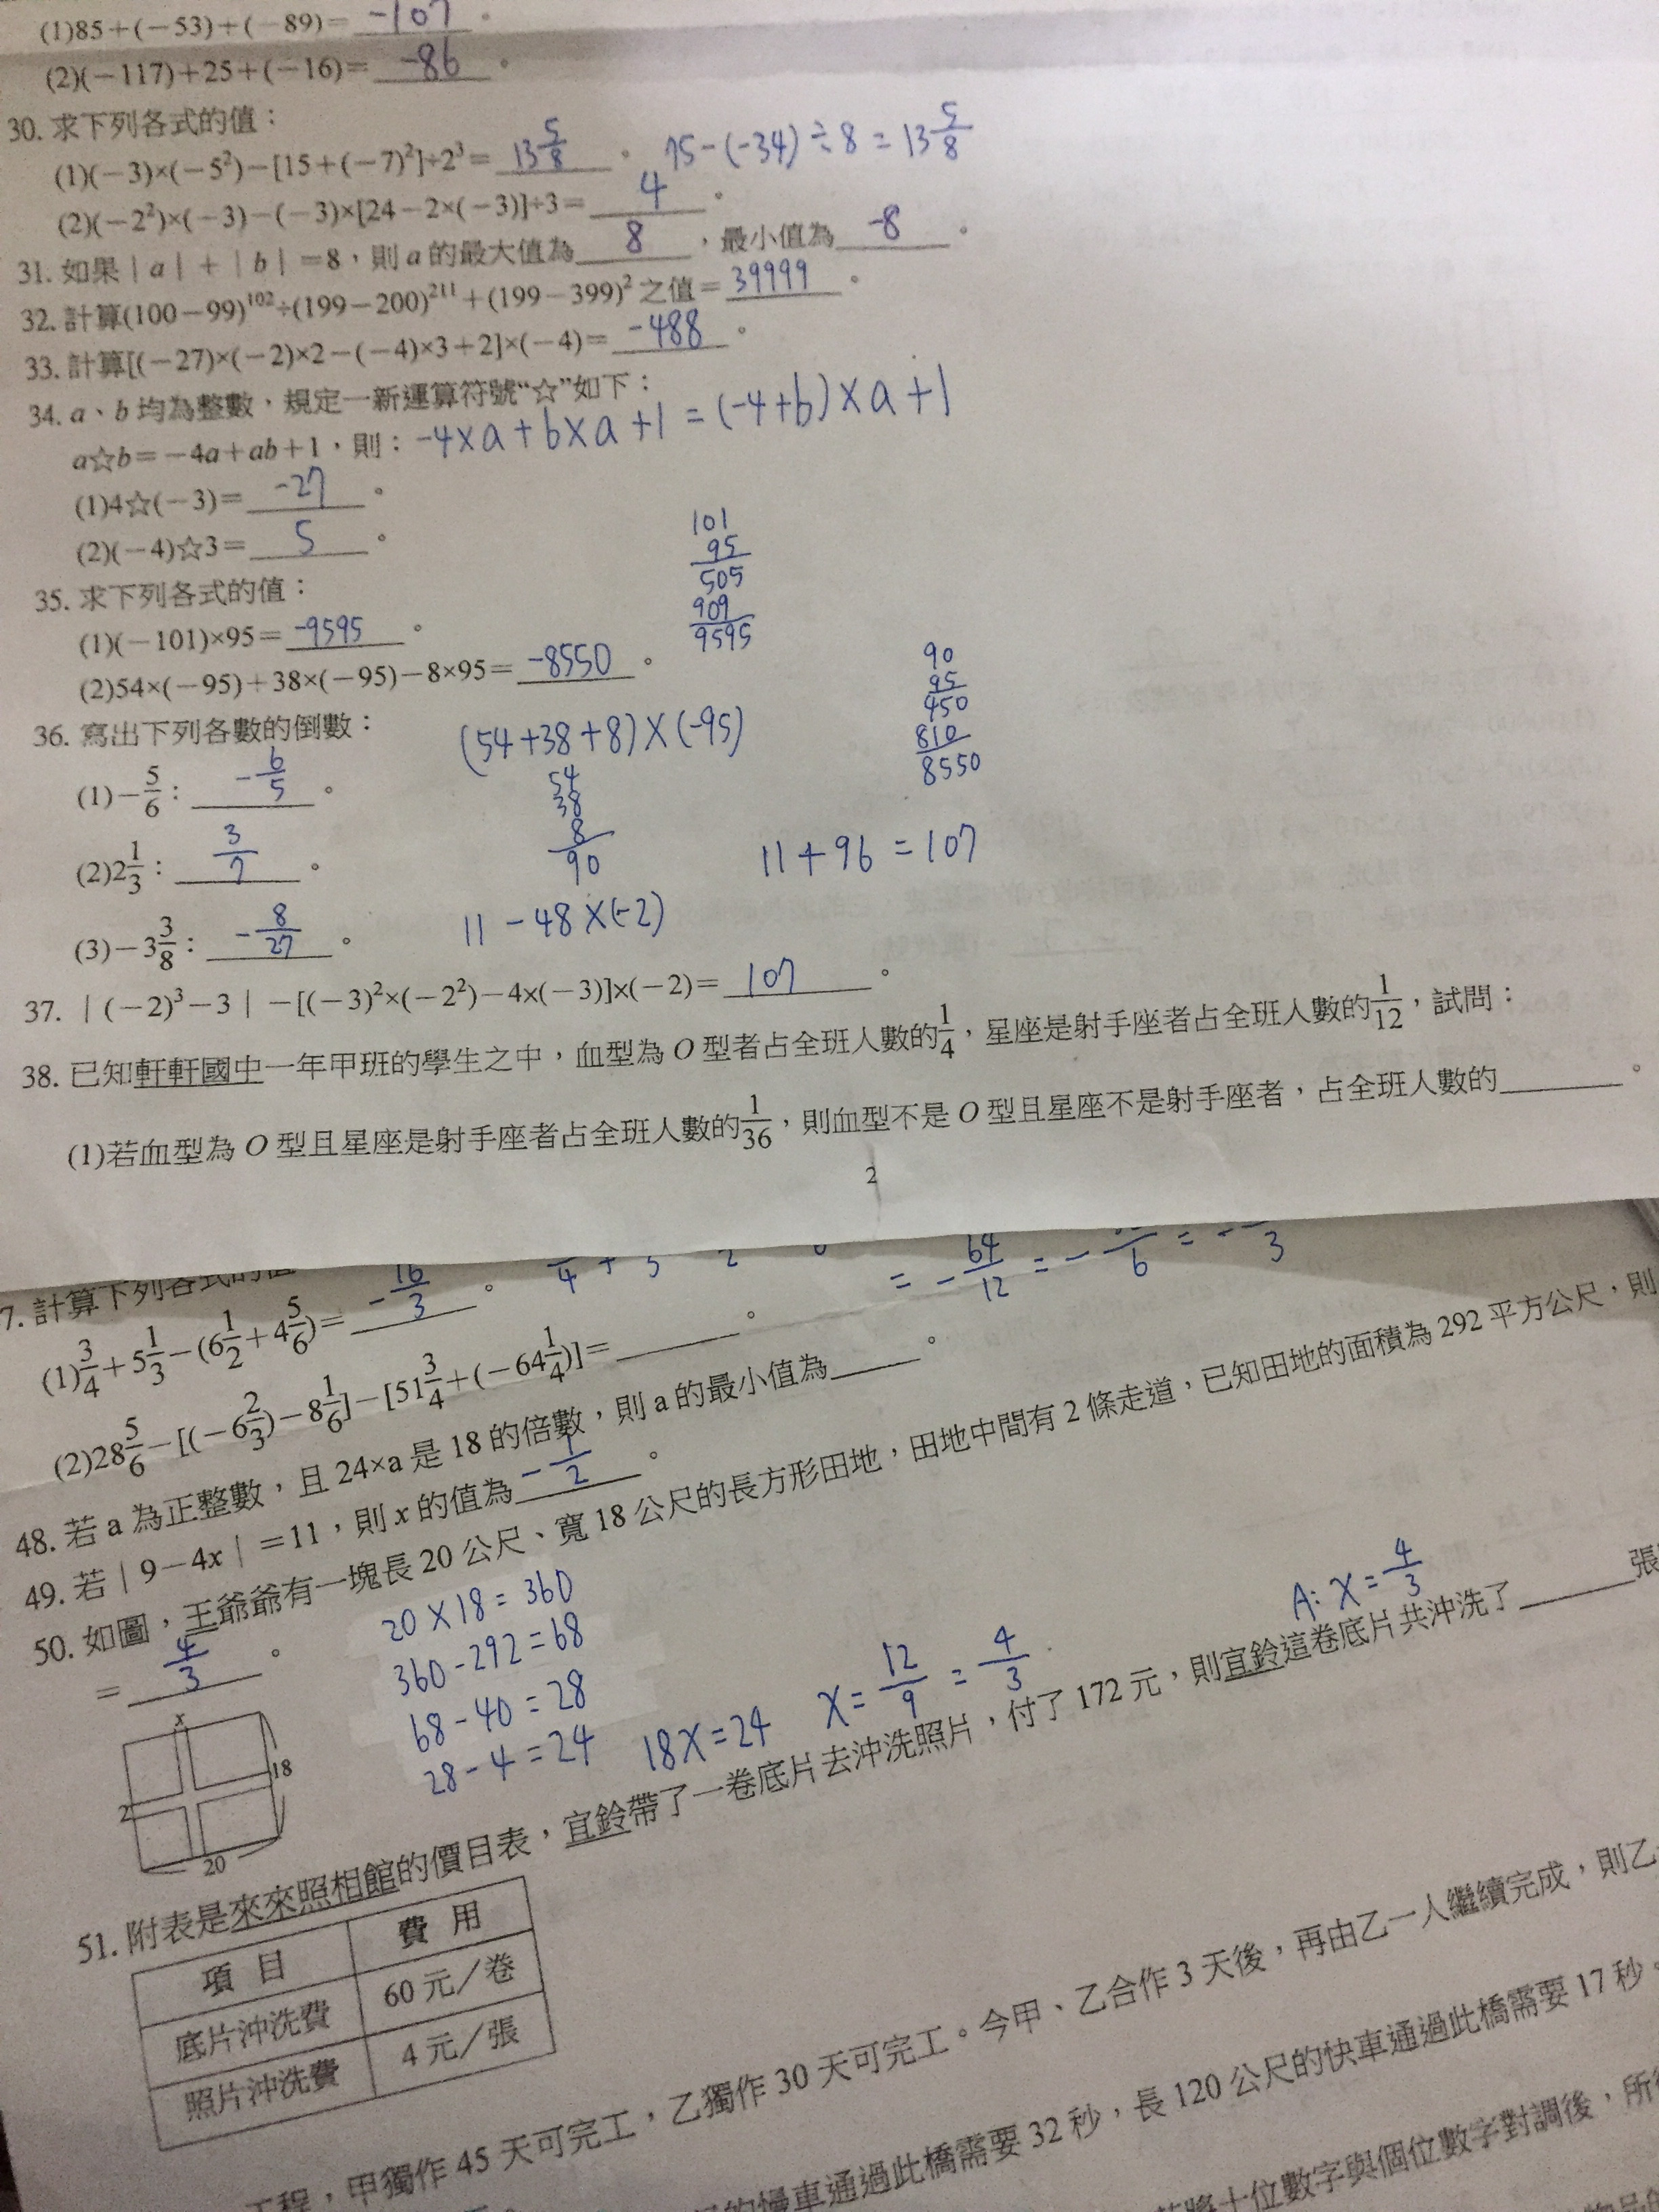 (1)85+(−53)+(−89)= -107 。
(2)(−117)+25+(−16)= -86 。
30. 求下列各式的值：
(1)(−3)×(−5²)−[15+(−7)²]÷2³= 13 5/8 。 75-(-34)÷8=13 5/8
(2)(−2²)×(−3)−(−3)×[24−2×(−3)]÷3= 4 。
31. 如果｜a｜+｜b｜=8，則 a 的最大值為 8 ，最小值為 -8 。
32. 計算(100−99)¹⁰²÷(199−200)²¹¹+(199−399)²之值= 39999 。
33. 計算[(−27)×(−2)×2−(−4)×3+2]×(−4)= -488 。
34. a、b 均為整數，規定一新運算符號“☆”如下：
a☆b=−4a+ab+1，則： -4×a+b×a+1=(-4+b)×a+1
(1)4☆(−3)= -27 。
(2)(−4)☆3= 5 。
101
95
505
909
9595
35. 求下列各式的值：
(1)(−101)×95= -9595 。
(2)54×(−95)+38×(−95)−8×95= -8550 。
90
95
450
810
8550
36. 寫出下列各數的倒數：
(54+38+8)×(-95)
(1)−5/6： -6/5 。
54
38
8
90
(2)2 1/3： 3/7 。
11+96=107
(3)−3 3/8： -8/27 。
11-48×(-2)
37. ｜(−2)³−3｜−[(−3)²×(−2²)−4×(−3)]×(−2)= 107 。
38. 已知軒軒國中一年甲班的學生之中，血型為 O 型者占全班人數的1/4，星座是射手座者占全班人數的1/12，試問：
(1)若血型為 O 型且星座是射手座者占全班人數的1/36，則血型不是 O 型且星座不是射手座者，占全班人數的 。
2
7. 計算下列各式的值
(1)3/4+5 1/3−(6 1/2+4 5/6)= -16/3 。
= -64/12 =
(2)28 5/6−[(−6 2/3)−8 1/6]−[51 3/4+(−64 1/4)]= 。
48. 若 a 為正整數，且 24×a 是 18 的倍數，則 a 的最小值為 。
49. 若｜9−4x｜=11，則 x 的值為 -1/2 。
50. 如圖，王爺爺有一塊長 20 公尺、寬 18 公尺的長方形田地，田地中間有 2 條走道，已知田地的面積為 292 平方公尺，則
= 4/3 。
20×18=360
360-292=68
68-40=28
28-4=24
18X=24
X=12/9=4/3
A:X=4/3
x
18
2
20
51. 附表是來來照相館的價目表，宜鈴帶了一卷底片去沖洗照片，付了 172 元，則宜鈴這卷底片共沖洗了 張
項 目 費 用
底片沖洗費 60 元／卷
照片沖洗費 4 元／張
工程，甲獨作 45 天可完工，乙獨作 30 天可完工。今甲、乙合作 3 天後，再由乙一人繼續完成，則乙
的慢車通過此橋需要 32 秒，長 120 公尺的快車通過此橋需要 17 秒。
將十位數字與個位數字對調後，所